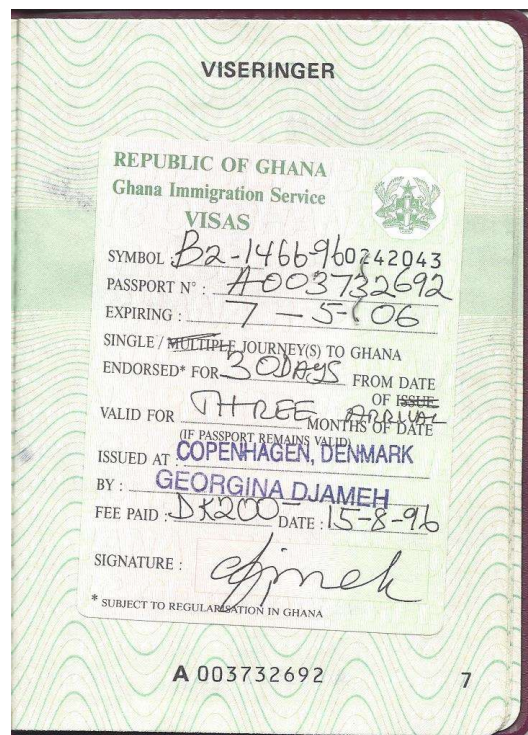 VISERINGER
REPUBLIC OF GHANA
Ghana Immigration Service
VISAS
SYMBOL : B2-1466-96 0242043
PASSPORT N° : A003732692
EXPIRING : 7-5-06
SINGLE / MULTIPLE JOURNEY(S) TO GHANA
ENDORSED* FOR 30DAYS FROM DATE
OF ISSUE
ARRIVAL
VALID FOR THREE MONTHS OF DATE
(IF PASSPORT REMAINS VALID)
ISSUED AT : COPENHAGEN, DENMARK
BY : GEORGINA DJAMEH
FEE PAID : DK200- DATE : 15-8-96
SIGNATURE :
* SUBJECT TO REGULARISATION IN GHANA
A 003732692 7